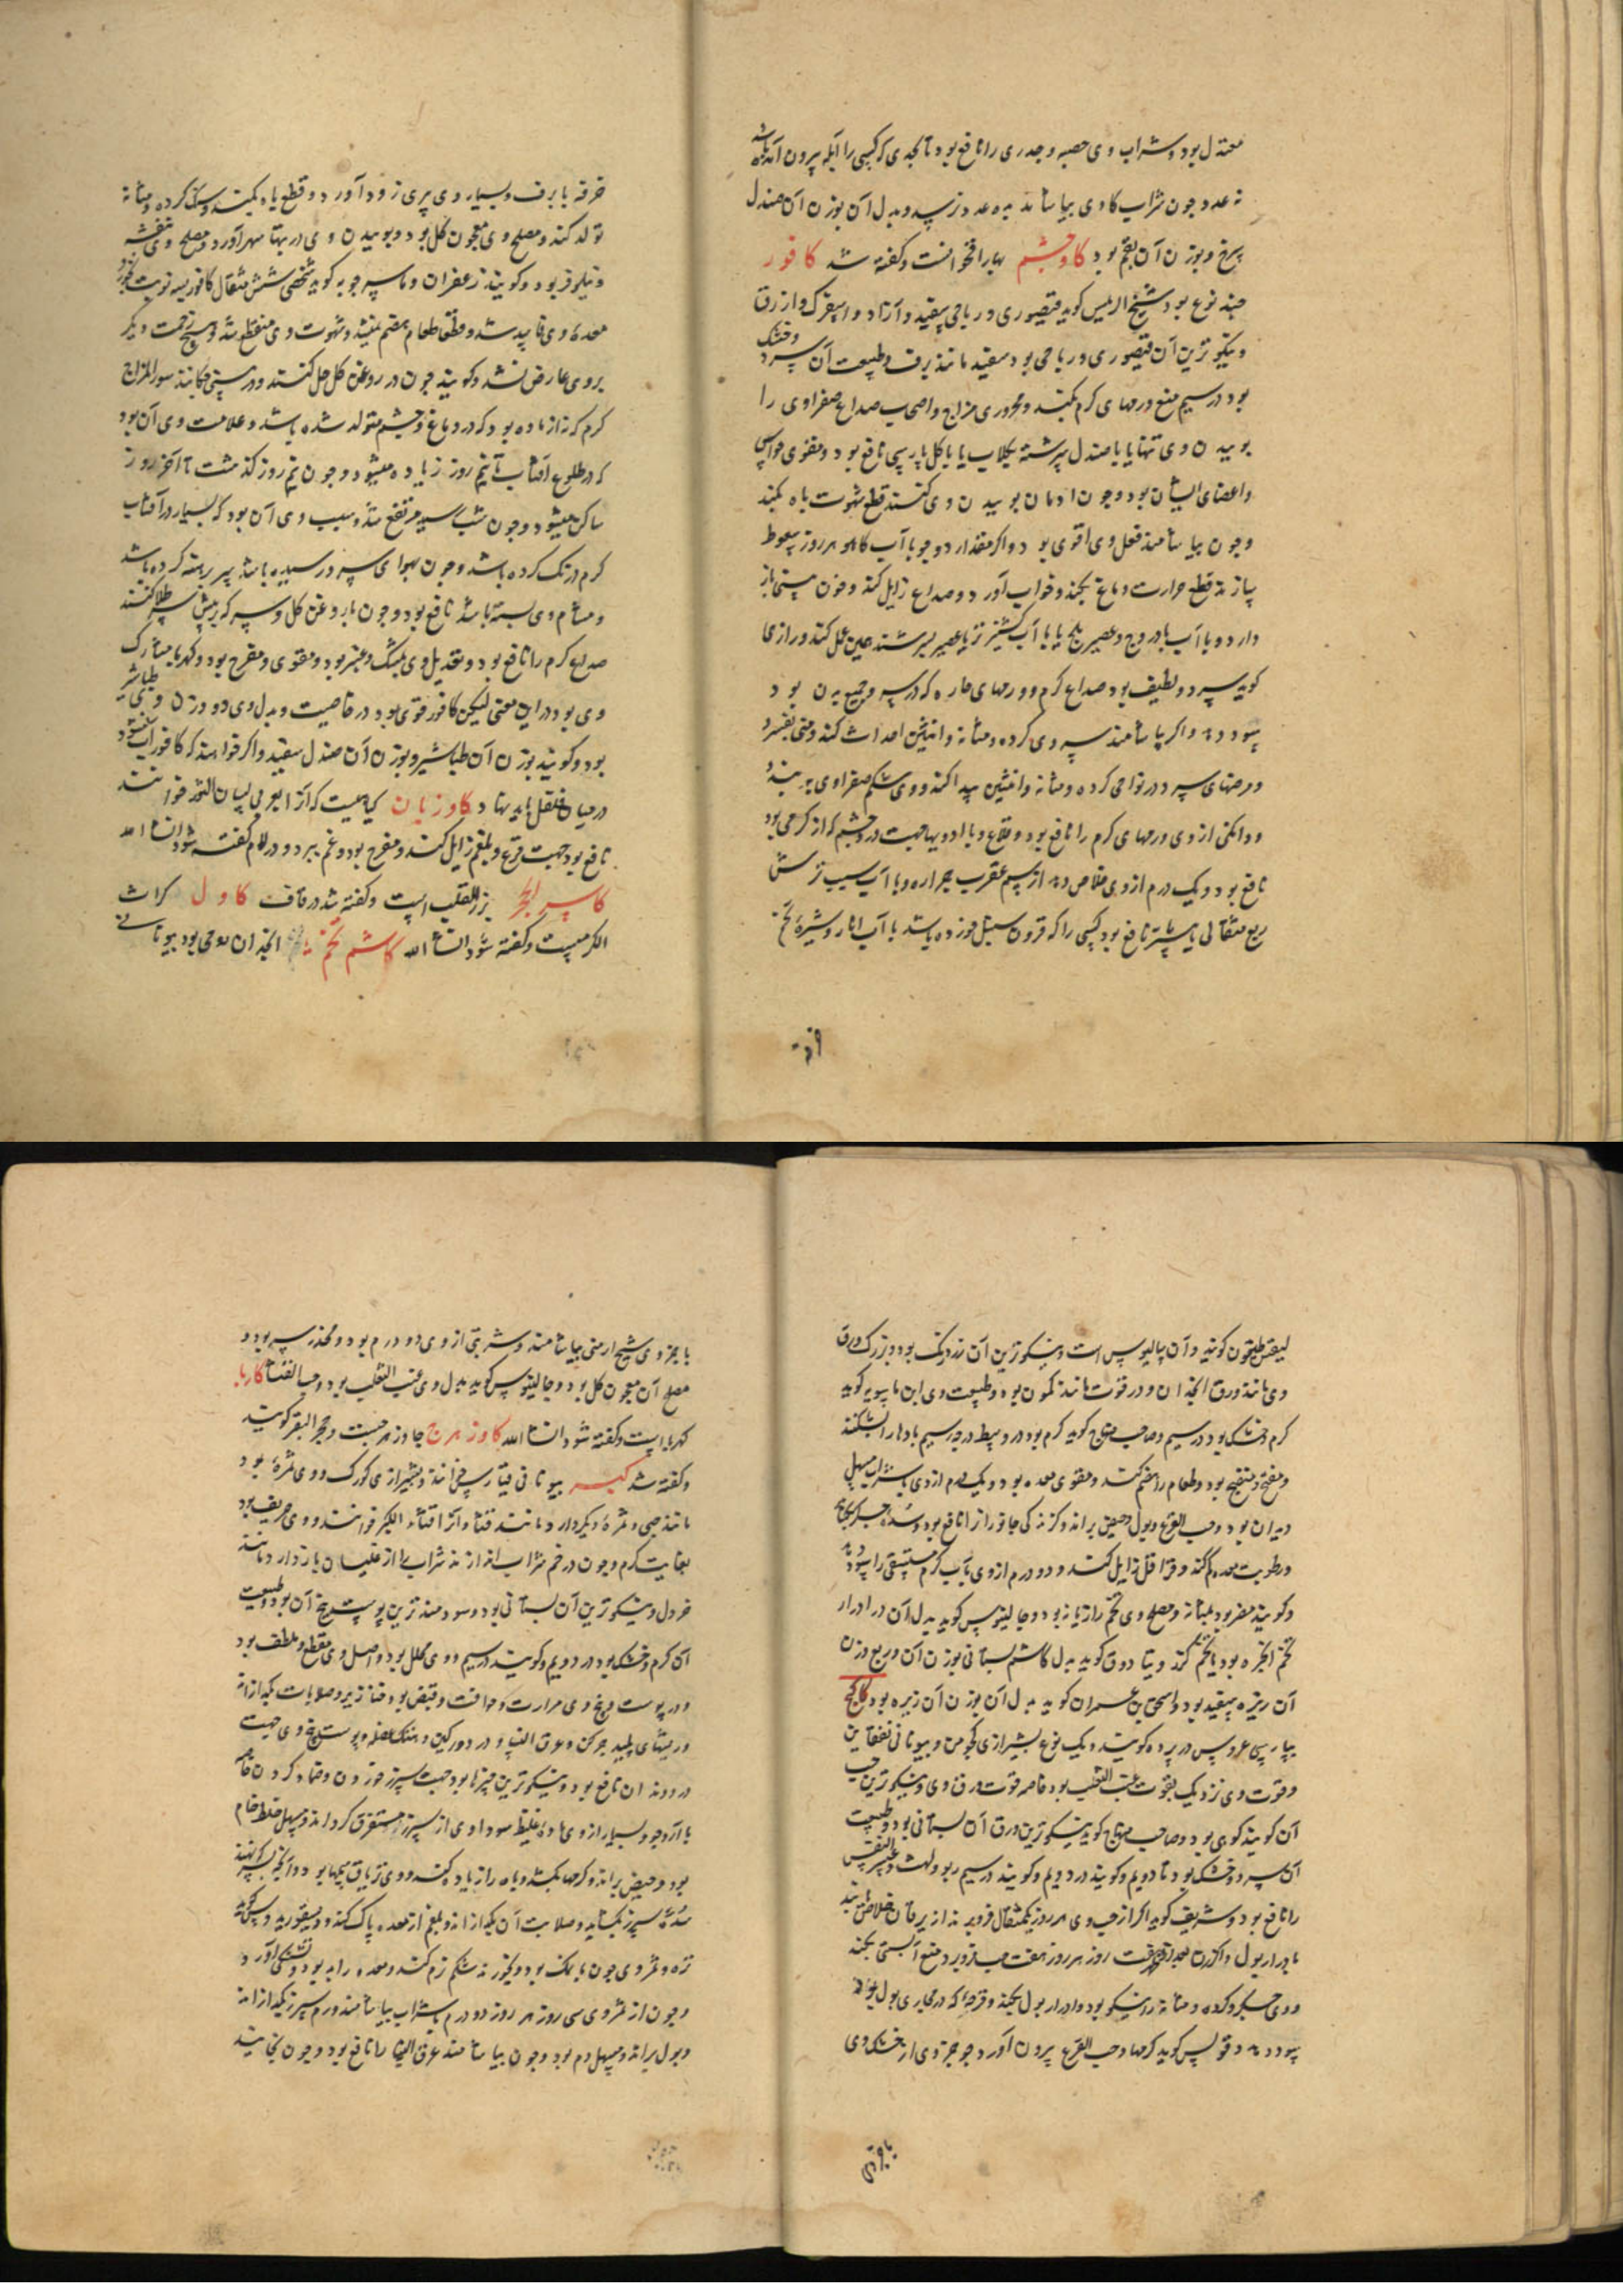 معتدل بود و شراب وی حصبه و جدری را نافع بود تا بحدی که کسی را آبله بیرون آمده باشد
نه عدد چون شراب کادی بیاشامد به ده عدد نرسد و بدل آن بوزن آن صندل
سرخ و بوزن آن بقم بود کاوچشم بهار اخوانست و گفته شد کافور
چند نوع بود شیخ الرئیس گوید قیصوری و رباحی سفید و آزاد و اسفرک و ازرق
و نیکوترین آن قیصوری و رباحی بود سفید مانند برف و طبیعت آن سرد و خشک
بود در سیم منع ورمهای گرم بکند و محروری مزاج و اصحاب صداع صفراوی را
بوییدن وی تنها یا با صندل سرشته بگلاب یا با گل پارسی نافع بود و مقوی حواس
و اعضای ایشان بود و چون ادمان بوییدن وی کنند قطع شهوت باه بکند
و چون بیاشامند فعل وی اقوی بود و اگر مقدار دو جو با آب کاهو هر روز سعوط
سازند قطع حرارت دماغ بکند و خواب آورد و صداع زایل کند و خون بینی باز
دارد و با آب بادروج و عصیر بلح یا با آب گشنیز تر یا عصیر بسر سرشته همین عمل کند و رازی
گوید سرد و لطیف بود صداع گرم و ورمهای حاره که در سر و جمیع بدن بود
سود دهد و اگر بیاشامند سردی گرده و مثانه و انثیین احداث کند و منی بفسرد
و مرضهای سرد در نواحی گرده و مثانه و انثیین پیدا کند و وی شکم صفراوی ببندد
و دانگی از وی ورمهای گرم را نافع بود و قلاع و با ادویها جهت درد چشم که از گرمی بود
نافع بود و یک درم از وی خلاص دهد از سم عقرب جراره و با آب سیب ترش
ربع مثقالی یا بیشتر نافع بود کسی را که قرون سنبل خورده باشد با آب انار و شیره تخم
خرفه یا برف و بسیار وی پیری زود آورد و قطع باه بکند و سنگ گرده و مثانه
تولد کند و مصلح وی معجون گل بود و بوییدن وی در تبها سهر آورد و مصلح وی بنفشه
و نیلوفر بود و گویند زعفران و ماسرجویه گوید شخصی شش مثقال کافور بسه نوبت بخورد
معده وی فاسد شد و مطلقا طعام هضم نمیشد و شهوت وی منقطع شد و هیچ زحمت دیگر
بر وی عارض نشد و گویند چون در روغن گل حل کنند و در بینی چکانند سوء المزاج
گرم که نه از ماده بود و که در دماغ و چشم متولد شده باشد و علامت وی آن بود
که در طلوع آفتاب تا نیم روز زیاده میشود و چون نیم روز گذشت تا آخر روز
ساکن میشود و چون شب رسید مرتفع شد و سبب وی آن بود که بسیار در آفتاب
گرم درنگ کرده باشد و چون بهوای سرد رسیده باشد سر برهنه کرده باشد
و مسام وی بسته باشد نافع بود و چون با روغن گل و سرکه بر پیش سر طلا کنند
صداع گرم را نافع بود و تعدیل وی بمشک و عنبر بود و مقوی و مفرح بود و کهربا مشارک
وی بود در این معنی لیکن کافور قوی بود در خاصیت و بدل وی دو وزن وی طباشیر
بود و گویند بوزن آن طباشیر و بوزن آن صندل سفید و اگر خواهند که کافور آب نشود
در میان فلفل باید نهاد کاوزبان گیاهیست که آنرا بعربی لسان الثور خوانند
نافع بود جهت قرع و بلغم زایل کند و مفرح بود و غم ببرد و در لام گفته شود انشاء الله
کاسر الحجر بزر القلب است و گفته شد در قاف کاول کراث
الکرمیست و گفته شود انشاء الله کاشم تخم انجدان رومی بود بیونانی
لیغسطیقون گویند و آن سالیوس است و نیکوترین آن زردرنگ بود و بزرگ ورق
وی مانند ورق انجدان و در قوت مانند کمون بود و طبیعت وی ابن ماسویه گوید
گرم و خشک بود در سیم و صاحب منهاج گوید گرم بود در وسط درجه سیم بادها را بشکند
و مفتح و منضج بود و طعام را هضم کند و مقوی معده بود و یک درم از وی با شراب مسهل
دیدان بود و حب القرع و بول و حیض براند و گزندگی جانوران را نافع بود و سده جگر بگشاید
و رطوبت معده کم کند و قراقر زایل کند و دو درم از وی بآب گرم مستسقی را سود دهد
و گویند مضر بود بمثانه و مصلح وی تخم رازیانه بود و جالینوس گوید بدل آن در ادرار
تخم انجره بود یا تخم گزر و بنادوق گوید بدل کاشم بستانی بوزن آن و ربع وزن
آن زیره سفید بود و اسحق بن عمران گوید بدل آن بوزن آن زیره بود کاکنج
بپارسی عروس در پرده گویند و یک نوع بشیرازی کچومن و بیونانی نفقاین
و قوت وی نزدیک بقوت عنب الثعلب بود خاصه قوت ورق وی و نیکوترین حب
آن گویند کوهی بود و صاحب منهاج گوید نیکوترین ورق آن بستانی بود و طبیعت
آن سرد و خشک بود تا دویم و گویند در دویم و گویند در سیم ربو و لهث و عسر النفس
را نافع بود و شریف گوید اگر از حب وی هر روز یک مثقال فرو برند از یرقان خلاص یابند
بادرار بول و اگر زن بعد از طهر هفت روز هر روز هفت حب فرو برد منع آبستنی بکند
و وی جگر و گرده و مثانه را نیکو بود و ادرار بول بکند و قرحه که در مجاری بول بود
سود دهد و فولس گوید کرمها و حب القرع بیرون آورد چو جزوی از خشک وی
با جزوی شیح ارمنی بیاشامند و شربتی از وی دو درم بود و مخدر سر بود و
مصلح آن معجون گل بود و جالینوس گوید بدل وی عنب الثعلب بود و حب القثا کاربا
کهربا است و گفته شود انشاء الله کاوزهرج جاوزهرجست و حجر البقر گویند
و گفته شد کبر بیونانی قبارس خوانند و بشیرازی کورک و وی ثمره بود
مانند حبی و ثمره دیگر دارد مانند قثا و آنرا قثاء الکبر خوانند و وی حریف بود
بغایت گرم و چون در خم شراب اندازند شراب را از غلیان باز دارد مانند
خردل و نیکوترین آن بستانی بود و سودمندترین پوست بیخ آن بود و طبیعت
آن گرم و خشک بود در دویم و گویند در سیم و وی محلل بود و اصل وی مقطع و ملطف بود
و در پوست بیخ وی مرارت و حرافت و قبض بود و خنازیر و صلابات بگدازاند
و ریشهای پلید چرکن و عرق النسا و درد ورکین و هتک عضل و پوست بیخ وی جهت
درد دندان نافع بود و نیکوترین چیزها بود جهت سپرز خوردن و ضماد کردن خاصه
با آرد جو و بسیار از وی ماده غلیظ سوداوی از سپرز مستفرغ گرداند و مسهل خلط خام
بود و حیض براند و کرمها بکشد و باه را زیاد کند و وی تریاق سمها بود و آنچه بسرکه نهند
سده سپرز بگشاید و صلابت آن بگدازاند و بلغم از معده پاک کند و دیسقوریدوس گوید
تره و ثمر وی چون با نمک بود و بخورند شکم نرم کند و معده را بد بود و تشنگی آورد
و چون از ثمر وی سی روز هر روز دو درم بشراب بیاشامند ورم سپرز بگدازاند
و بول براند و مسهل دم بود و چون بیاشامند عرق النسا را نافع بود و چون بخایند